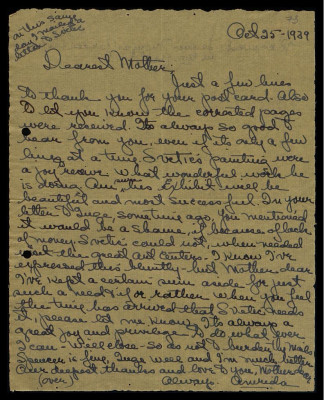 on this same
day I mailed a
letter to Svetic
Oct 25-1939
Dearest Mother:
Just a few lines
to thank you for your post card. Also
to let you know the corrected pages
were received. It's always so good to
hear from you, even if its only a few
lines at a time Svetic's painting were
a joy receive what wonderful work he
is doing. Am sure this Exhibit will be
beautiful and most successful. In your
letter to Inga, sometime ago, you mentioned
it would be a shame, if because of lack
of money Svetic could not, when needed
visit the great art centers. I know I've
expressed this bluntly - but Mother dear
I've kept a certain sum aside for just
such a need, so for rather when you feel
the time has arrived that Svetic needs
it, please let me know. It's always a
great joy and privilege to do what ever
I can. Will close - so do not I burden you. Mails
Spencer is fine, Inga well and I'm much better
Our deepest thanks and love to you, Mother dear
(over) Always - Amrida